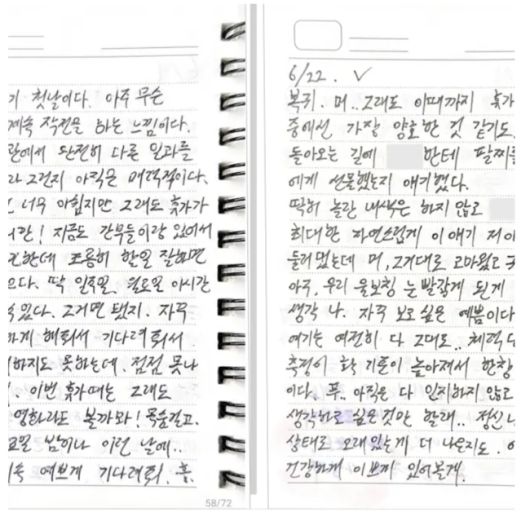 기 첫날이다. 아주 무슨
계속 작전을 하는 느낌이다.
관에서 완전히 다른 일과를
라 그런지 아직은 매력적이다.
너무 아쉽지만 그래도 휴가가
지만! 지금도 간부들이랑 있어서
한데 조용히 할일 잘하면
은다. 딱 일요일, 월요일 야시간
있다. 그거면 됐지. 자꾸
하게 해줘서 기다려줘서.
하지도 못하는데. 점점 못나
. 이번 휴가때는 그래도
영화라도 볼까봐! 목숨걸고.
요일 밤이나 이런 날에..
계속 예쁘게 기다려줘. 흥.
58/72
6/22. ✓
복귀. 머.. 그래도 이때까지 휴가
중에선 가장 양호한 것 같기도.
돌아오는 길에 한테 팔찌를
에게 선물했는지 얘기했다.
딱히 놀란 내색은 하지 않고
최대한 자연스럽게 이 얘기 저 이
둘러댔는데 머, 그거대로 고마웠고
아주, 우리 울보칭 눈 빨갛게 된게
생각 나. 자꾸 보고 싶은 예쁨이다
여기는 여전히 다 그대로.. 체력
측정이 확 기준이 높아져서 한창
이다. 푸.. 아직은 다 인지하지 않고
생각하고 싶은것만 할래.. 정신
상태로 오래있는게 더 나은지도.
건강하게 이쁘게 있어볼게.